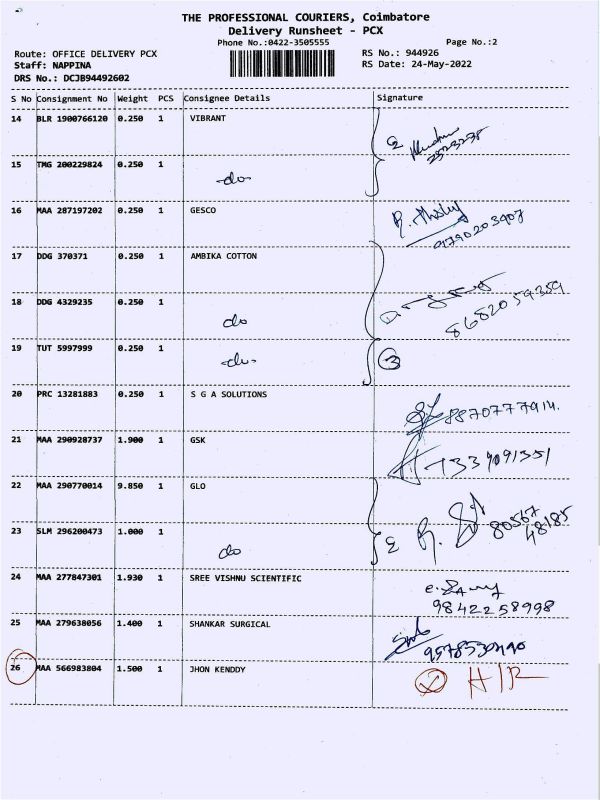 THE PROFESSIONAL COURIERS, Coimbatore
Delivery Runsheet - PCX
Phone No.:0422-3505555 Page No.:2
Route: OFFICE DELIVERY PCX RS No.: 944926
Staff: NAPPINA RS Date: 24-May-2022
DRS No.: DCJB94492602
S No Consignment No Weight PCS Consignee Details Signature
14 BLR 1900766120 0.250 1 VIBRANT
2
15 TMG 200229824 0.250 1 do
16 MAA 287197202 0.250 1 GESCO
9790203907
17 DDG 370371 0.250 1 AMBIKA COTTON
18 DDG 4329235 0.250 1 do
8682059359
19 TUT 5997999 0.250 1 do 3
20 PRC 13281883 0.250 1 S G A SOLUTIONS 8870777914.
21 MAA 290928737 1.900 1 GSK 7339091351
22 MAA 290770014 9.850 1 GLO
80567
48185
23 SLM 296200473 1.000 1 do
24 MAA 277847301 1.930 1 SREE VISHNU SCIENTIFIC
9842258998
25 MAA 279638056 1.400 1 SHANKAR SURGICAL
26 MAA 566983804 1.500 1 JHON KENDDY